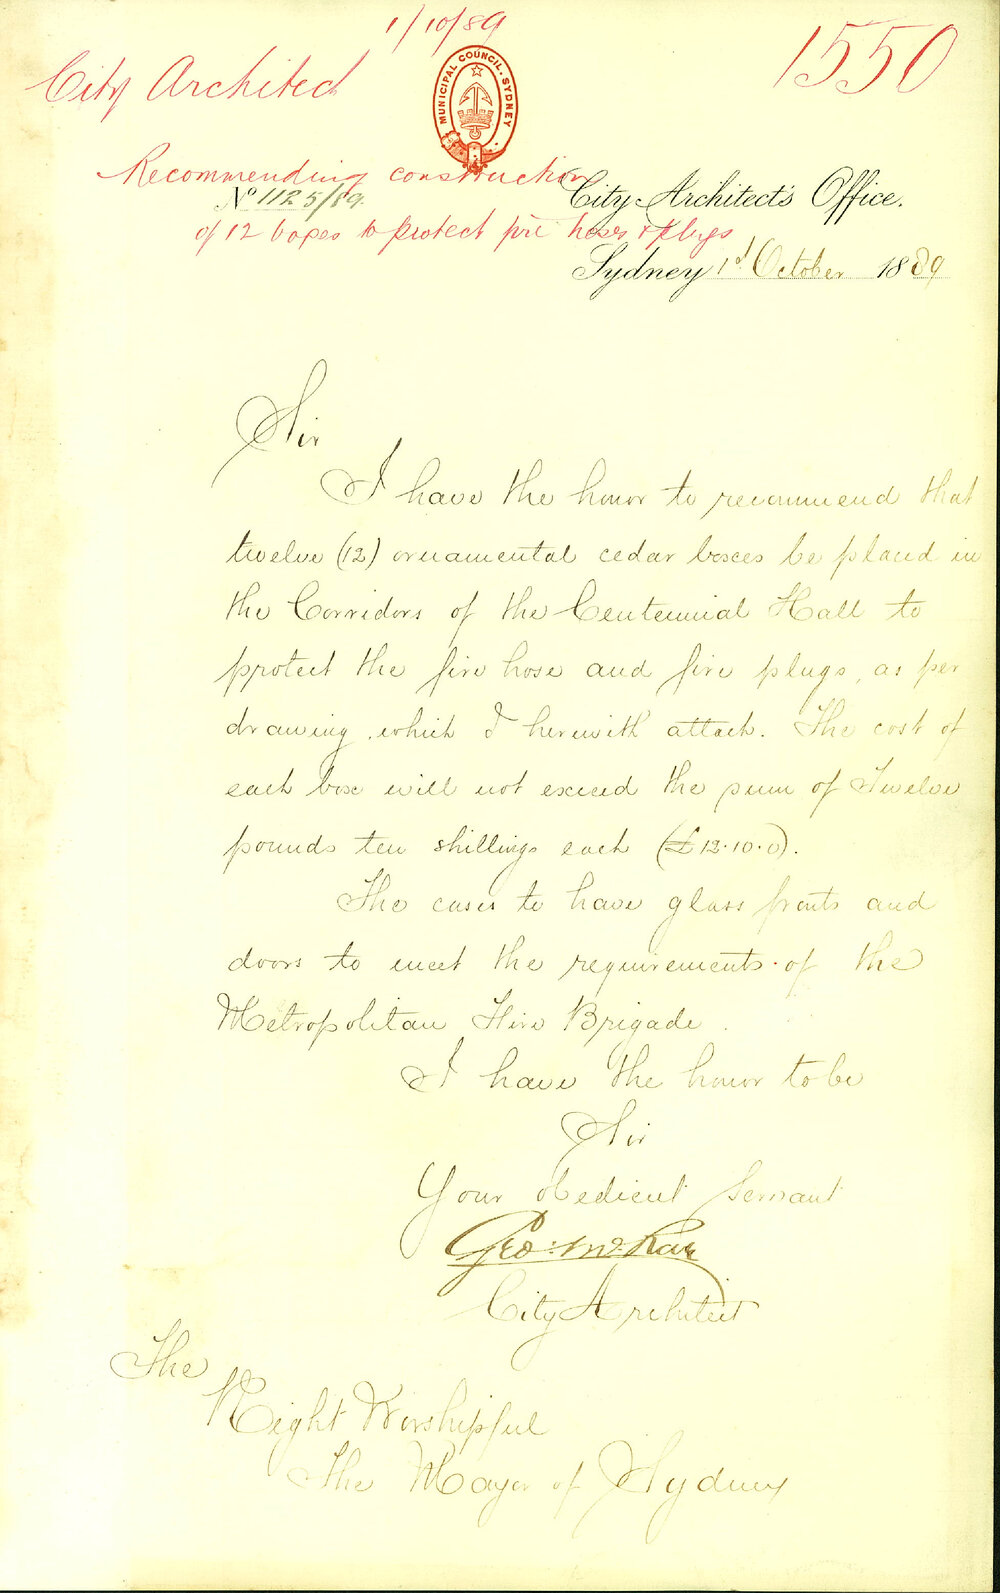 1/10/89
1550
City Architect
MUNICIPAL COUNCIL. SYDNEY
Recommending construction
No 1125/89
City Architect's Office.
of 12 boxes to protect fire hoses & plugs
Sydney 1st October 1889
Sir
I have the honor to recommend that
twelve (12) ornamental cedar boxes be placed in
the Corridors of the Centennial Hall to
protect the fire hose and fire plugs, as per
drawing which I herewith attach. The cost of
each box will not exceed the sum of Twelve
pounds ten shillings each (£12.10.0).
The cases to have glass fronts and
doors to meet the requirements of the
Metropolitan Fire Brigade.
I have the honor to be
Sir
Your obedient servant
Geo: McRae
City Architect
The
Right Worshipful
The Mayor of Sydney